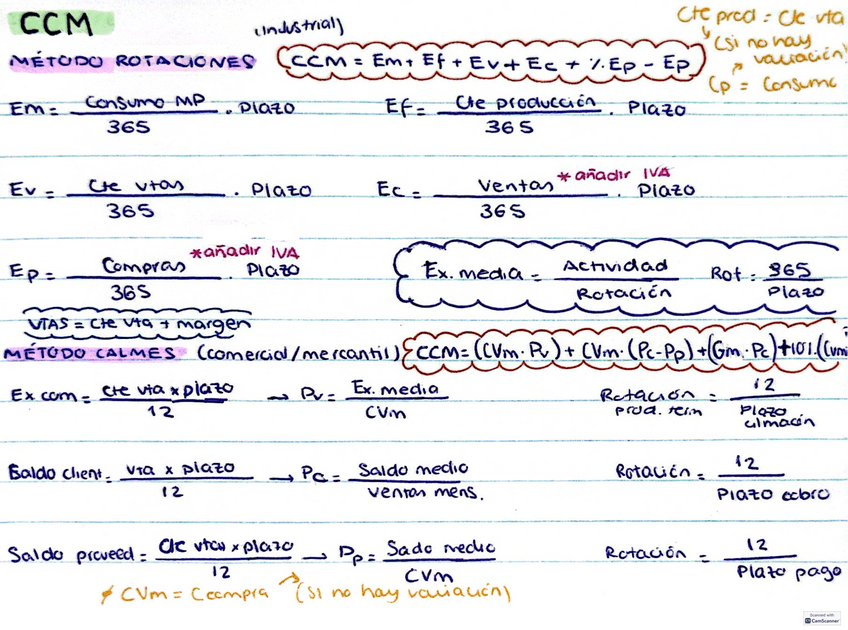 CCM
(Industrial)
Cte prod = Cte vta
(Si no hay
variación)
Cp = Consumo
MÉTODO ROTACIONES
CCM = Em + Ef + Ev + Ec + % Ep - Ep
Em = Consumo MP / 365 . Plazo
Ef = Cte producción / 365 . Plazo
Ev = Cte vtas / 365 . Plazo
Ec = Ventas / 365 . Plazo *añadir IVA
Ep = Compras / 365 . Plazo *añadir IVA
Ex. media = Actividad / Rotación Rot = 365 / Plazo
VTAS = Cte Vta + margen
MÉTODO CALMES (comercial/mercantil) CCM = (CVm . Pv) + CVm . (Pc - Pp) + (Gm . Pc) + 10%.
Ex com = cte vta x plazo / 12 → Pv = Ex. media / CVm
Rotación prod. term = 12 / Plazo almacén
Saldo client = vta x plazo / 12 → Pc = Saldo medio / Ventas mens.
Rotación = 12 / Plazo cobro
Saldo proveed = Cte vtas x plazo / 12 → Pp = Sado medio / CVm
Rotación = 12 / Plazo pago
CVm = Ccompra (si no hay variación)
Scanned with
CamScanner